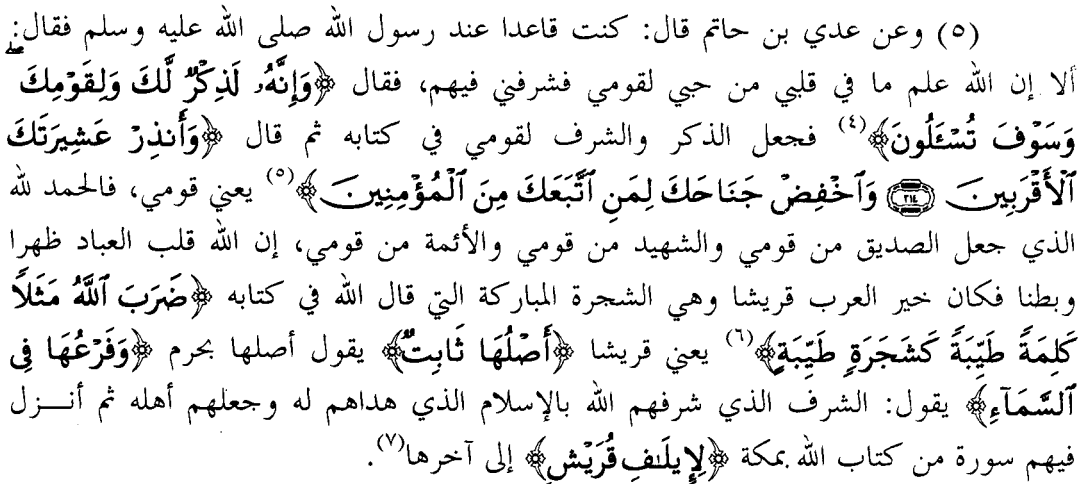 (٥) وعن عدي بن حاتم قال: كنت قاعدا عند رسول الله صلى الله عليه وسلم فقال:
ألا إن الله علم ما في قلبي من حبي لقومي فشرفني فيهم، فقال ﴿وَإِنَّهُۥ لَذِكْرٌ لَّكَ وَلِقَوْمِكَ
وَسَوْفَ تُسْـَٔلُونَ﴾(٤) فجعل الذكر والشرف لقومي في كتابه ثم قال ﴿وَأَنذِرْ عَشِيرَتَكَ
ٱلْأَقْرَبِينَ ۝٢١٤ وَٱخْفِضْ جَنَاحَكَ لِمَنِ ٱتَّبَعَكَ مِنَ ٱلْمُؤْمِنِينَ﴾(٥) يعني قومي، فالحمد لله
الذي جعل الصديق من قومي والشهيد من قومي والأئمة من قومي، إن الله قلب العباد ظهرا
وبطنا فكان خير العرب قريشا وهي الشجرة المباركة التي قال الله في كتابه ﴿ضَرَبَ ٱللَّهُ مَثَلًا
كَلِمَةً طَيِّبَةً كَشَجَرَةٍ طَيِّبَةٍ﴾(٦) يعني قريشا ﴿أَصْلُهَا ثَابِتٌ﴾ يقول أصلها بحرم ﴿وَفَرْعُهَا فِى
ٱلسَّمَآءِ﴾ يقول: الشرف الذي شرفهم الله بالإسلام الذي هداهم له وجعلهم أهله ثم أنــزل
فيهم سورة من كتاب الله بمكة ﴿لِإِيلَـٰفِ قُرَيْشٍ﴾ إلى آخرها(٧).